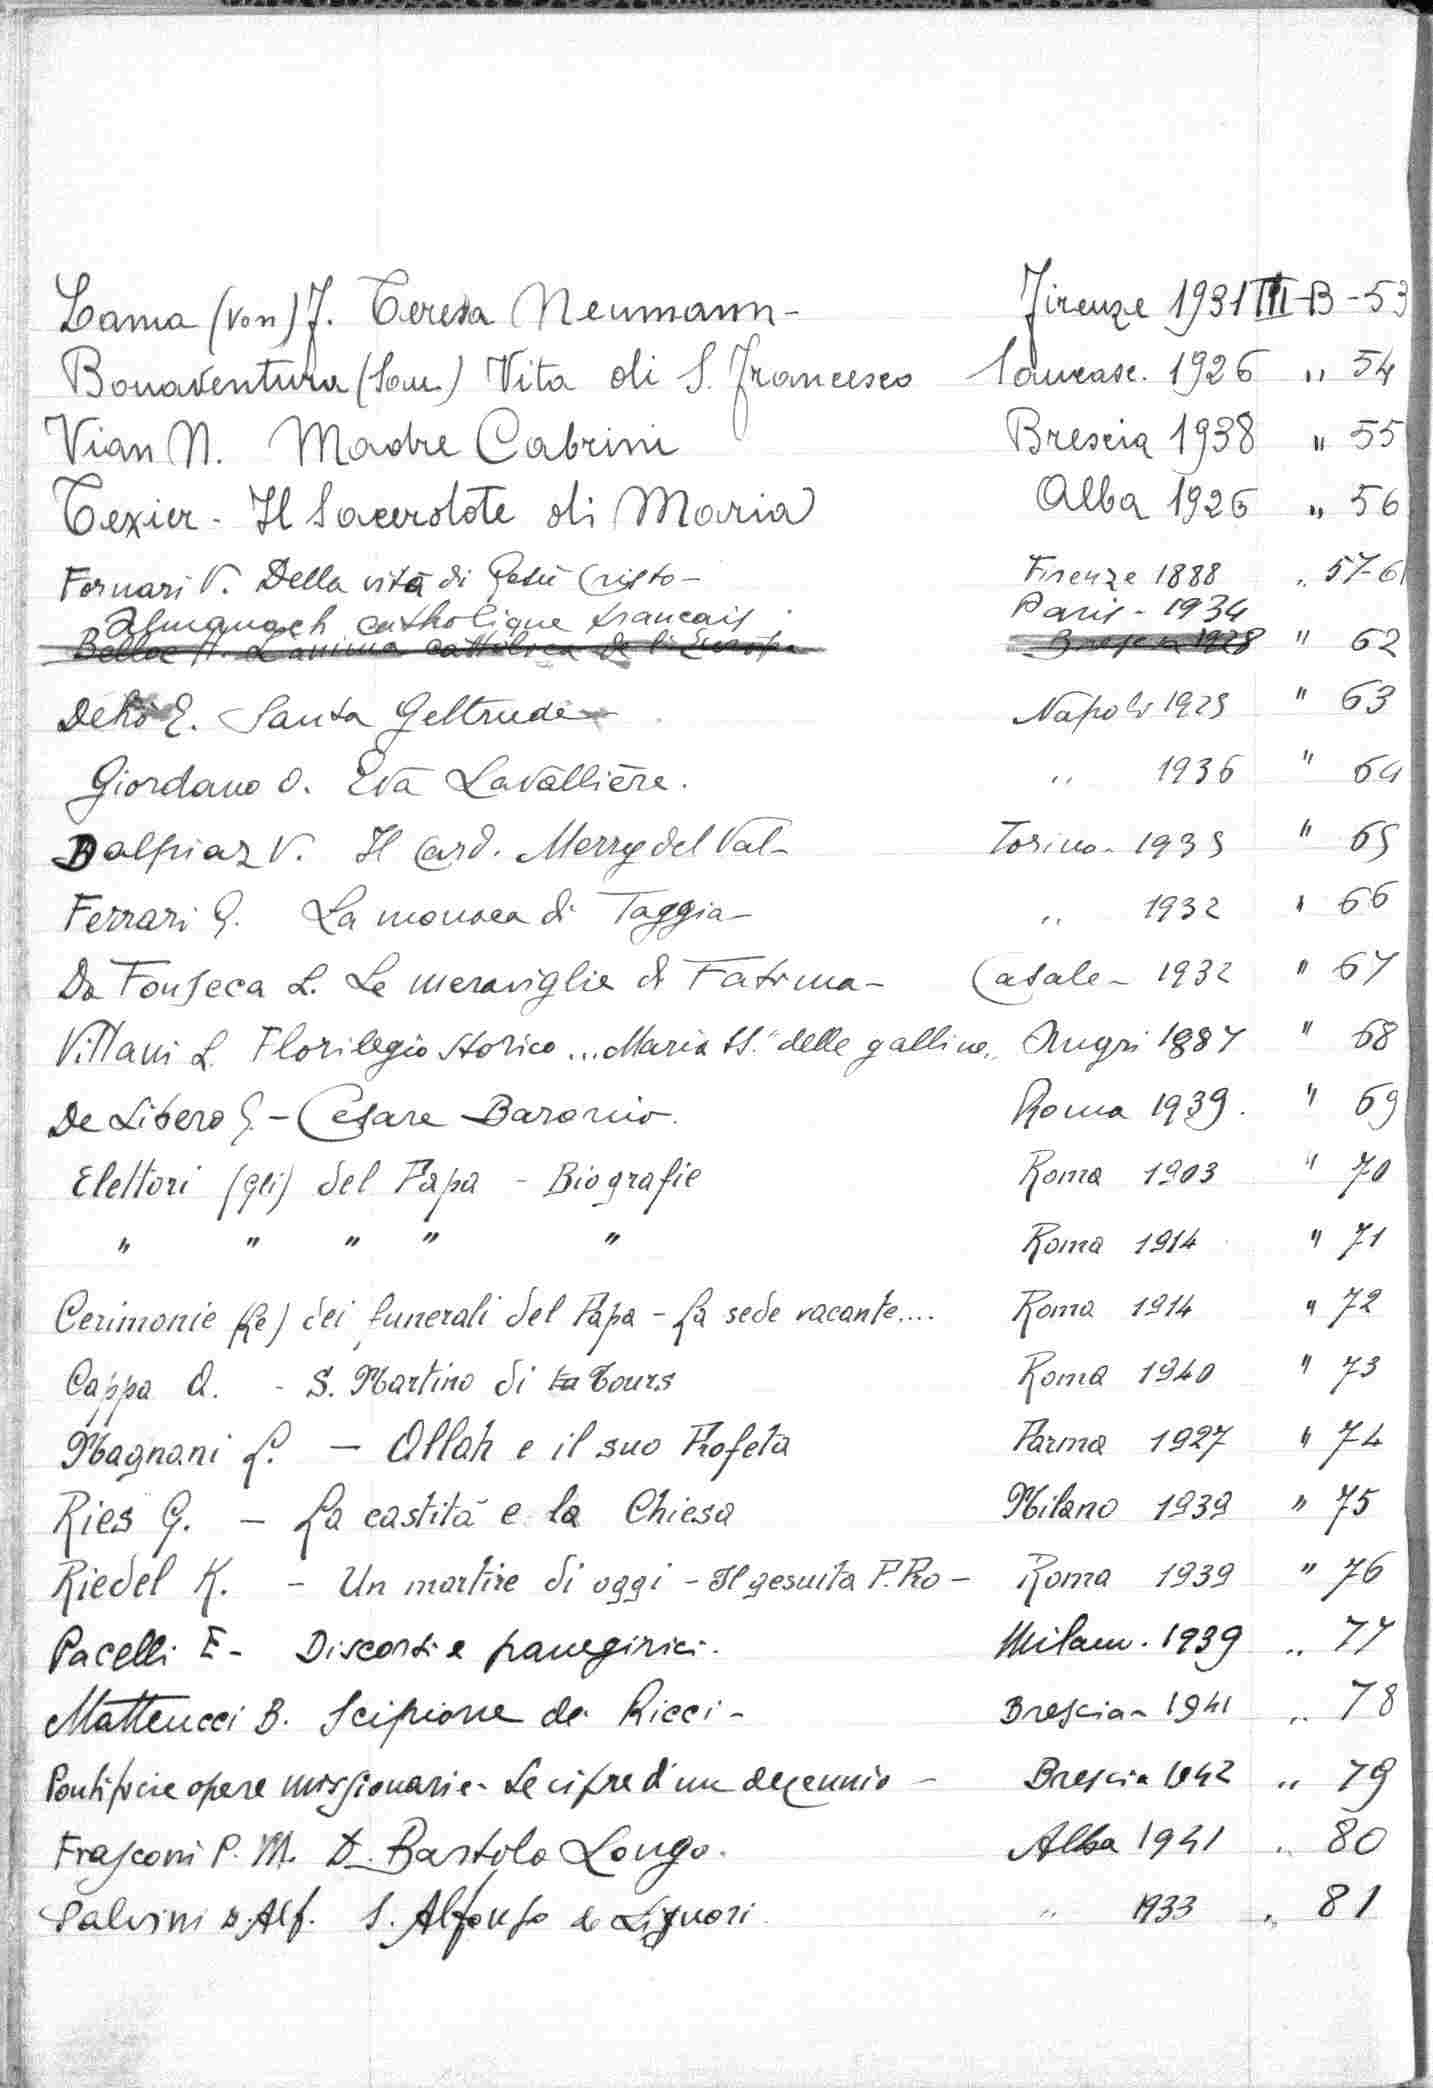 Lama (von) J. Teresa Neumann - Firenze 1931 III-B-53
Bonaventura (San) Vita di S. Francesco Lancasc. 1926 " 54
Vian N. Madre Cabrini Brescia 1938 " 55
Texier - Il Sacerdote di Maria Alba 1926 " 56
Fornari V. Della vita di Gesù Cristo - Firenze 1888 " 57-61
Almanach catholique francais Paris - 1934
Belloc H. L'anima cattolica de l'Europa Brescia 1928 " 62
Dehò E. Santa Geltrude Napoli 1929 " 63
Giordano O. Eva Lavallière. " 1936 " 64
Dalpiaz V. Il Card. Merry del Val - Torino - 1935 " 65
Ferrari G. La monaca di Taggia - " 1932 " 66
Da Fonseca L. Le meraviglie di Fatima - Casale - 1932 " 67
Villani L. Florilegio storico ... Maria SS. "delle galline" Angri 1887 " 68
De Libero G. - Cesare Baronio. Roma 1939. " 69
Elettori (gli) del Papa - Biografie Roma 1903 " 70
" " " " " Roma 1914 " 71
Cerimonie (Le) dei funerali del Papa - La sede vacante.... Roma 1914 " 72
Cappa A. - S. Martino di Tours Roma 1940 " 73
Magnani L. - Allah e il suo Profeta Parma 1927 " 74
Ries G. - La castità e la Chiesa Milano 1939 " 75
Riedel K. - Un martire di oggi - Il gesuita P. Pro - Roma 1939 " 76
Pacelli E - Discorsi e panegirici. Milano. 1939 " 77
Matteucci B. Scipione de Ricci - Brescia - 1941 " 78
Pontificie opere missionarie - Le cifre d'un decennio - Brescia 1942 " 79
Frasconi P. M. D. Bartolo Longo. Alba 1941 " 80
Salvini D. Alf. S. Alfonso de Liguori " 1933 " 81